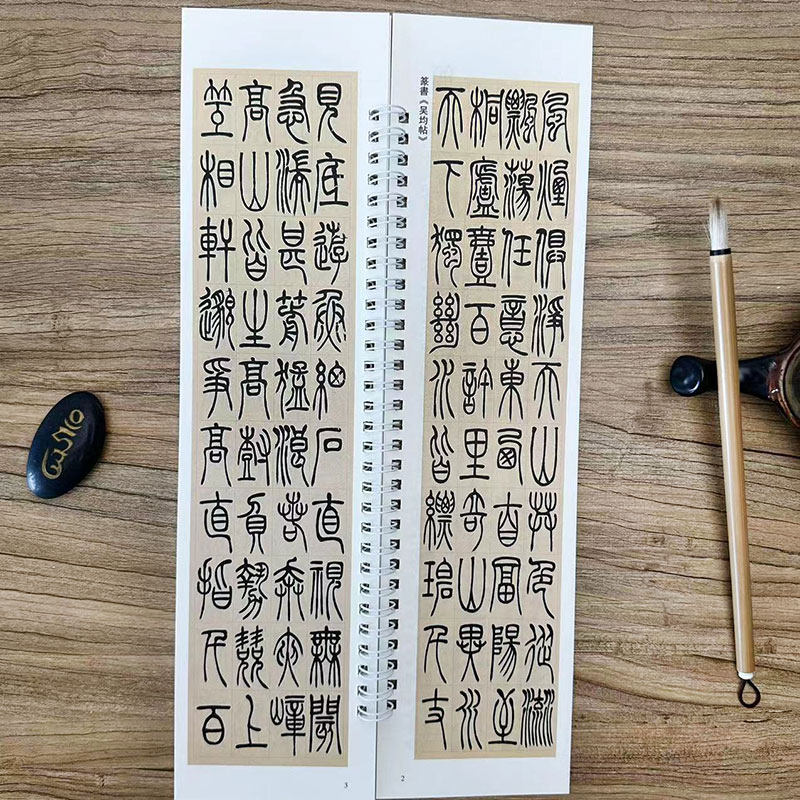 篆書《吴均帖》
風煙俱淨天山共色從流
飄蕩任意東西自富陽至
桐廬壹百許里奇山異水
天下獨絕水皆縹碧千丈
2
見底遊魚細石直視無閡
急湍甚箭猛浪若奔夾嶂
高山皆生高樹負勢競上
互相軒邈爭高直指千百
3